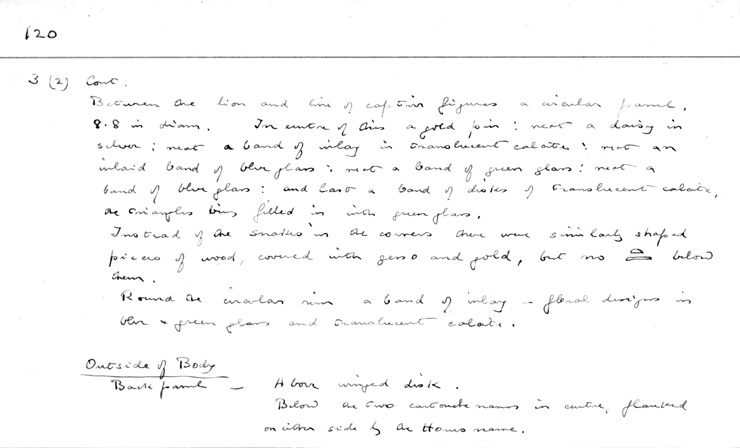 120
3 (2) Cont.
Between the lion and line of captive figures a circular panel,
8.8 in diam. In centre of this a gold pin : next a daisy in
silver : next a band of inlay in translucent calcite : next an
inlaid band of blue glass : next a band of green glass : next a
band of blue glass : and last a band of disks of translucent calcite,
the triangles being filled in with green glass.
Instead of the snakes in the corners there were similarly shaped
pieces of wood, covered with gesso and gold, but no below
them.
Round the circular rim a band of inlay - floral designs in
blue + green glass and translucent calcite.
Outside of Body
Back panel - Above winged disk.
Below the two cartouche names in centre, flanked
on either side by the Horus name.